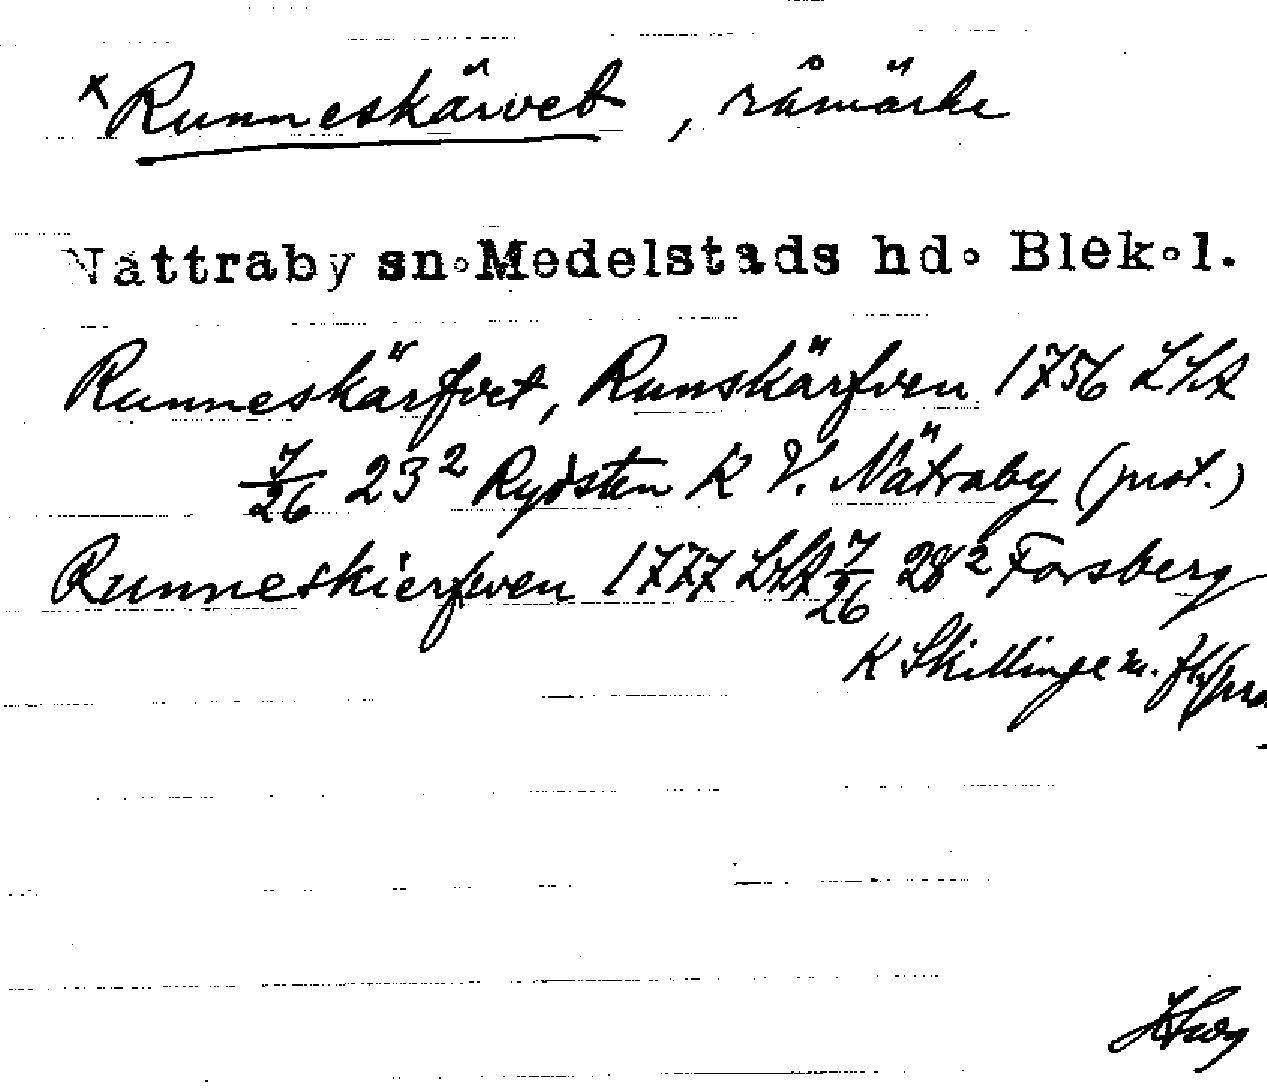 x Runneskärvet, råmärke
Nättraby sn. Medelstads hd. Blek. l.
Runneskärfvet, Runskärfven 1756 LSA
7/26 23² Rydsten K V. Nätraby (prot.)
Runneskierfwen 1777 LSA 7/26 28² Forsberg
K Skillinge m. fl.